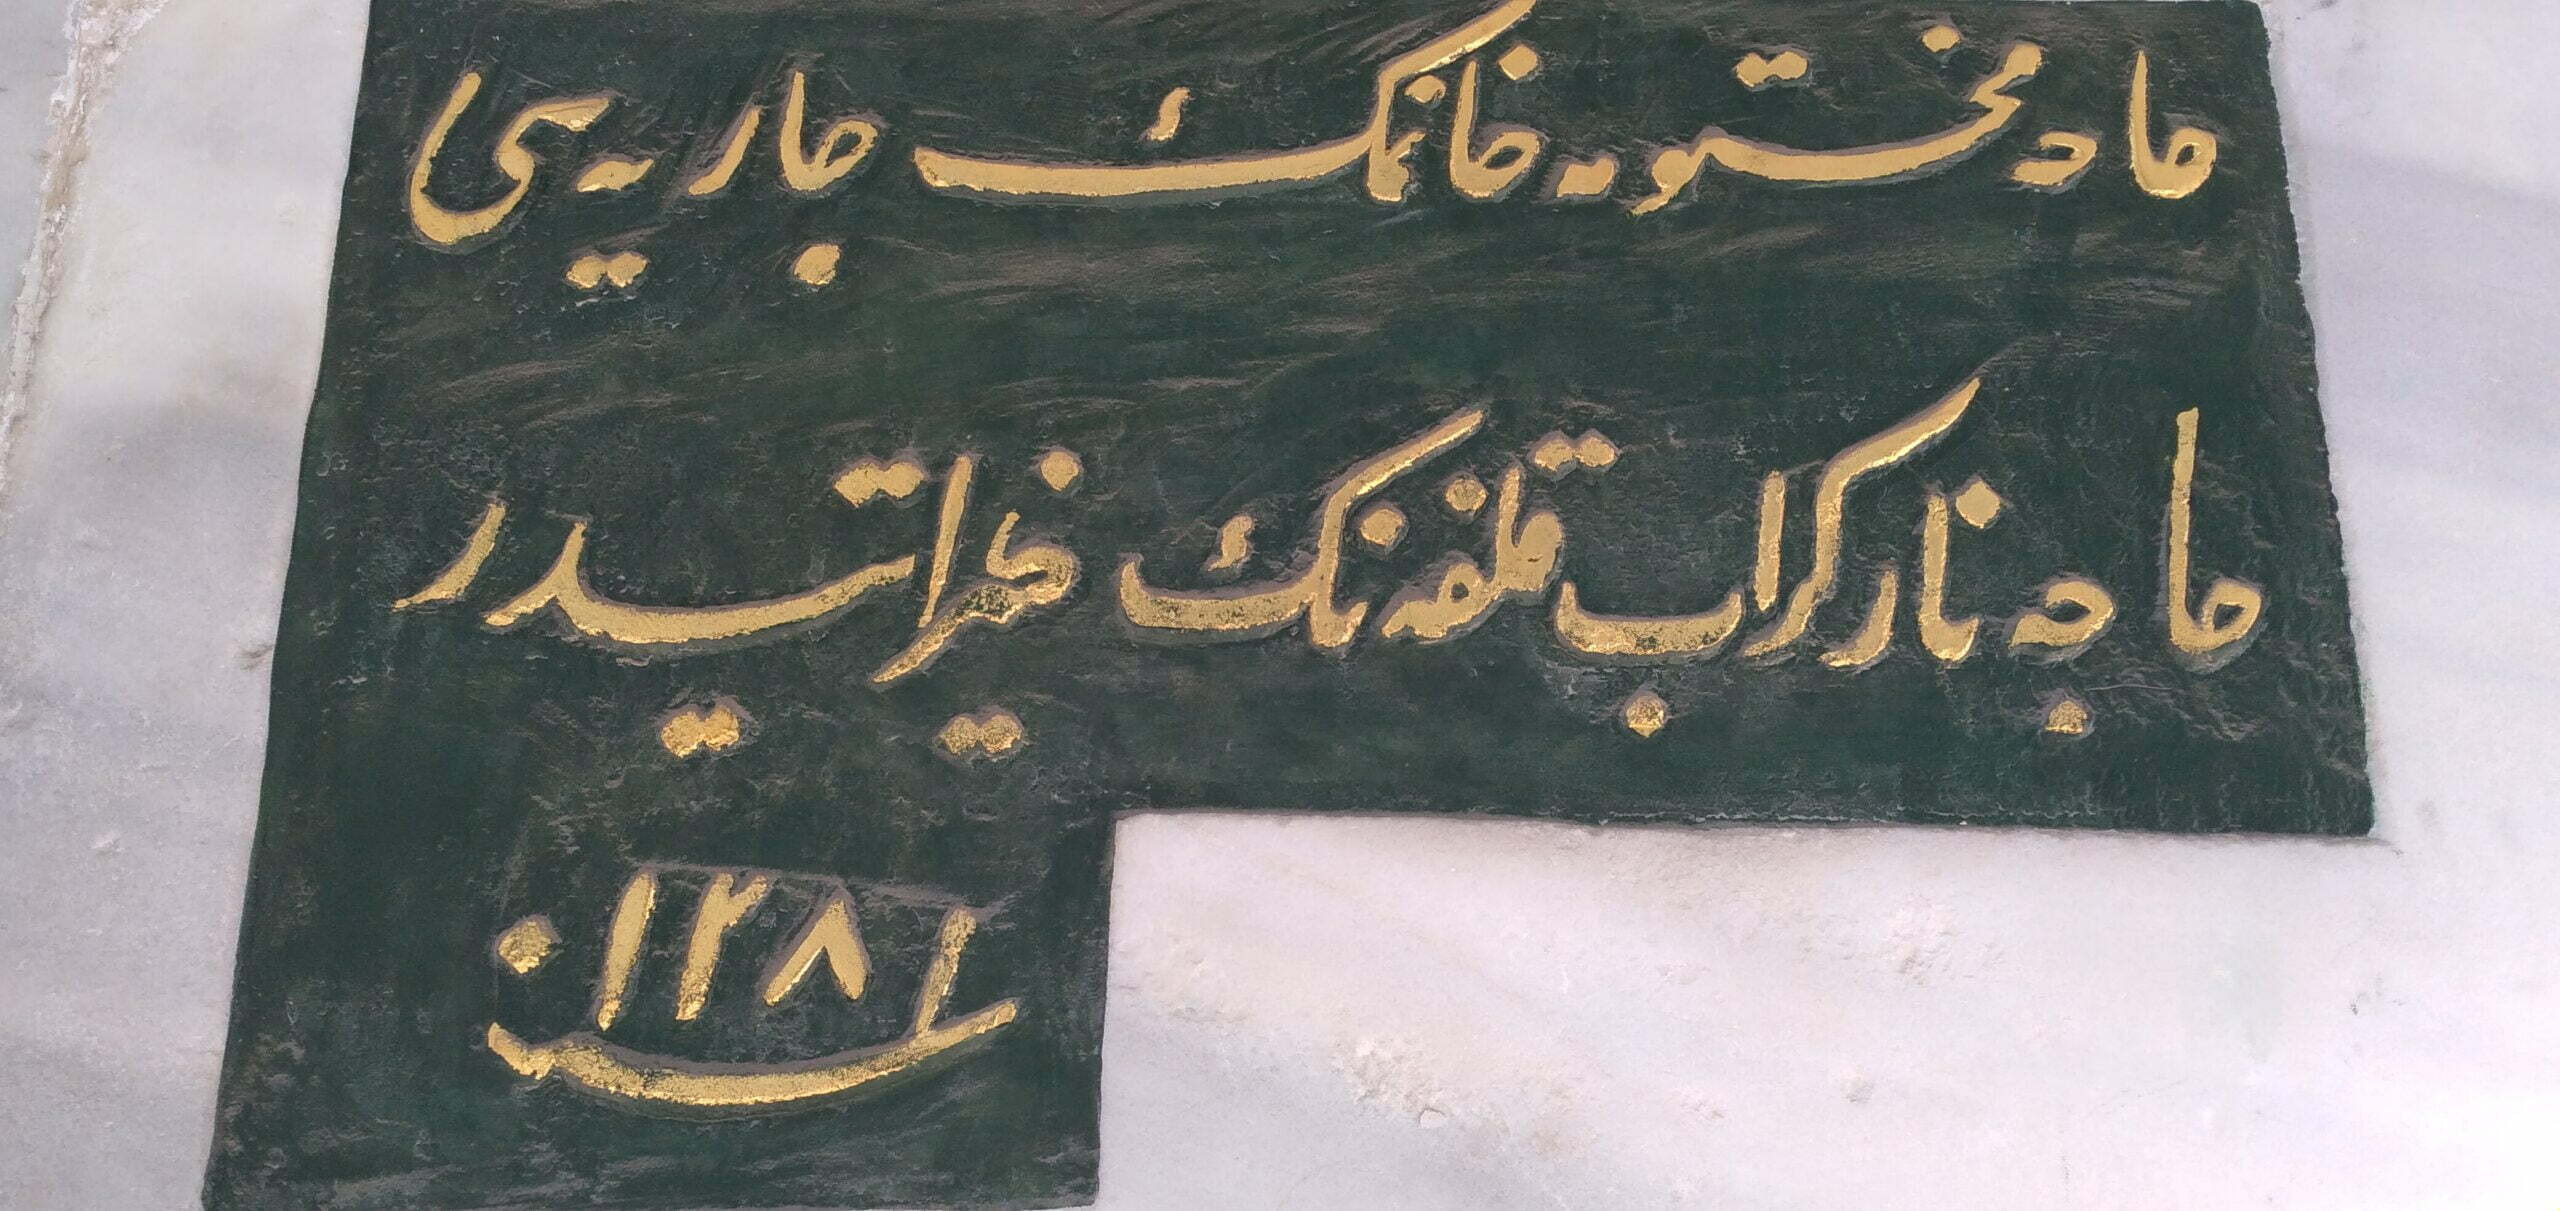 حاجه مختومه خانمك جاريه سى
حاجه نازكراب قلفه نك خيراتيدر
سنه ١٢٨١